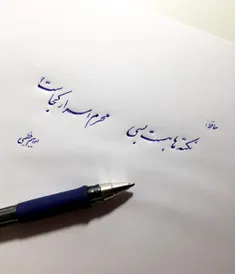 حافظ:
نکته‌ها هست بسی
محرم اسرار کجاست؟